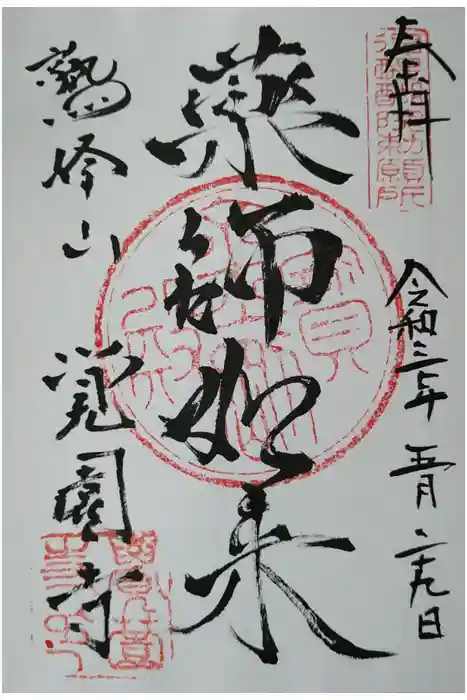 奉拝
令和三年 五月 二十九日
薬師如来
鷲峰山 覚園寺